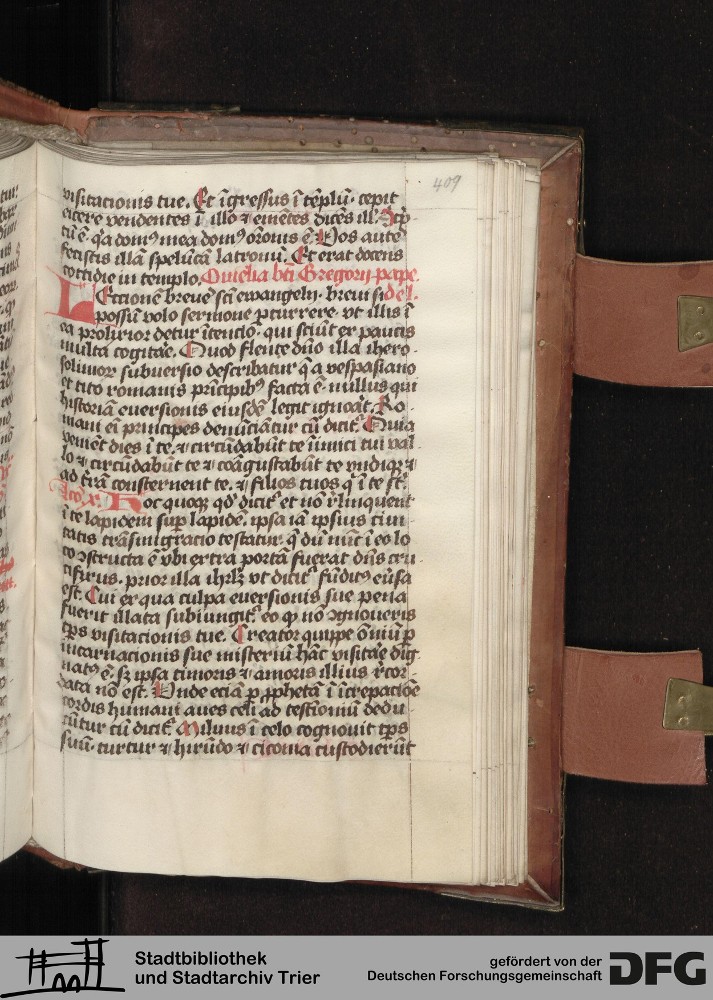 409
visitacionis tue. Et ĩgressus ĩ tẽplũ. cepit
eicere vendentes ĩ illo ⁊ emẽtes dicẽs ill'.
tũ ẽ. q̃a domꝰ mea domꝰ orõnis ẽ. Vos autẽ
fecistis illã spelũcã latronũ. Et erat docens
cottidie in templo. Omelia bti Gregorii pape.
Lectionẽ breuẽ scti ewangelij. breui si de l.
possũ volo sermone ꝑcurrere. vt illis ĩ
ea prolixior detur ĩtencio. qui sciũt ex paucis
multa cogitar̃e. Quod flente dño illa ihero
solimor̃ subuersio describatur q̃ a vespasiano
et tito romanis prĩcipibꝰ facta ẽ. nullus qui
historiã euersionis eiusdẽ legit ignorat. Ro
mani eĩ principes denũciãtur cũ dicit̃. Quia
venient dies ĩ te. ⁊ circũdabũt te inimici tui val
lo ⁊ circũdabũt te ⁊ coãgustabũt te vndiqꝫ ⁊
ad t̃rã consternent te. ⁊ filios tuos q̃ ĩ te st̃.
Hoc quoqꝫ qd' dicit̃ et nõ r̃linquent
ĩ te lapidem sup̃ lapidẽ. ipsa iã ipsius ciui
tatis trãsmigracio testatur. q̃ dũ nũc ĩ eo lo
co ꝯstructa ẽ vbi extra portã fuerat dñs cru
cifixus. prior illa ihrl̃z vt dicit̃ fũditꝰ eũsa
est. Cui ex qua culpa euersionis sue pena
fuerit illata subiungit̃. eo ꝙ nõ ꝯgnoueris
tp̃s visitacionis tue. Creator quippe õniũ ꝑ
incarnacionis sue misteriũ hãc visitar̃e dig̃
natꝰ ẽ. sꝫ ipsa timoris ⁊ amoris illius r̃cor
data nõ est. Vnde eciã ꝑ ꝓphetã ĩ ĩcrepaciõe
cordis humani aues celi ad testĩoniũ dedu
cũtur cũ dicit̃. Miluus ĩ celo cognouit tp̃s
suũ. turtur ⁊ hirũdo ⁊ ciconia custodierũt
Stadtbibliothek
und Stadtarchiv Trier
gefördert von der
Deutschen Forschungsgemeinschaft
DFG